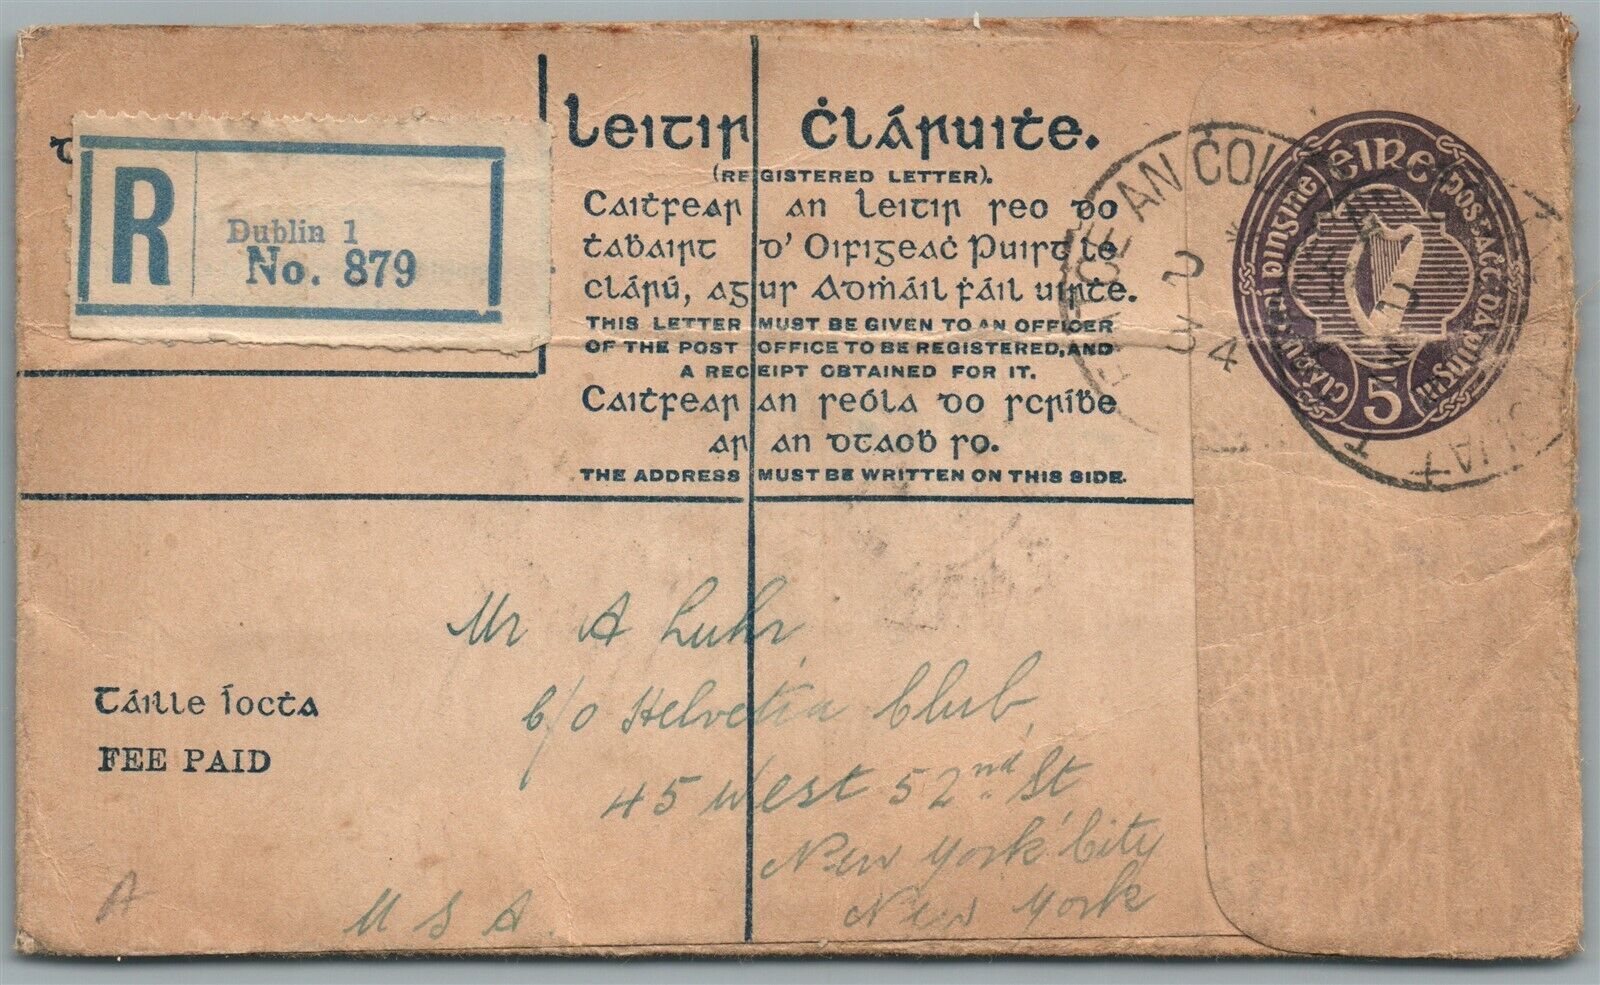 R
Dublin 1
No. 879
Leitir Ċláruiṫe.
(REGISTERED LETTER).
Caiṫfear an leitir seo do
ṫaḃairt d' Oifigeaċ Puirt le
clárú, agus Admáil ḟáil uirṫe.
THIS LETTER MUST BE GIVEN TO AN OFFICER
OF THE POST OFFICE TO BE REGISTERED, AND
A RECEIPT OBTAINED FOR IT.
Caiṫfear an seóla do scríḃe
ar an dtaoḃ so.
THE ADDRESS MUST BE WRITTEN ON THIS SIDE.
éire
5
AN COL
Mr A Luhr,
c/o Helvetia Club,
45 West 52nd St
New York City
New York
U S A.
Táille Íocṫa
FEE PAID
A